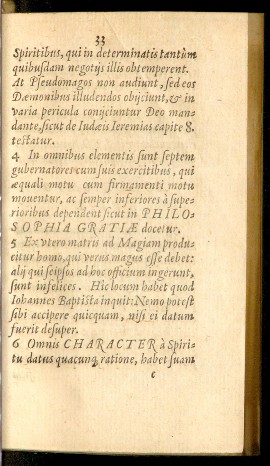 33
Spiritibus, qui in determinatis tantùm
quibusdam negotijs illis obtemperent.
At Pseudomagos non audiunt, sed eos
Dæmonibus illudendos obijciunt, & in
varia pericula conjiciuntur Deo man-
dante, sicut de Iudæis Ieremias capite 8.
testatur.
4 In omnibus elementis sunt septem
gubernatores cum suis exercitibus, qui
æquali motu cum firmamenti motu
mouentur, ac semper inferiores à supe-
rioribus dependent sicut in PHILO-
SOPHIA GRATIÆ docetur.
5 Ex vtero matris ad Magiam produ-
citur homo, qui verus magus esse debet:
alij qui seipsos ad hoc officium ingerunt,
sunt infelices. Hic locum habet quod
Iohannes Baptista inquit: Nemo potest
sibi accipere quicquam, nisi ei datum
fuerit desuper.
6 Omnis CHARACTER à Spiri-
tu datus quacunq; ratione, habet suam
c